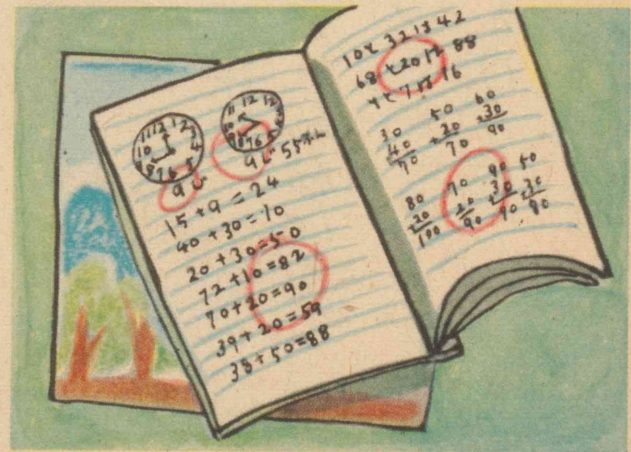 11 12 1 2 3 4 5 6 7 8 9 10
11 12 1 2 3 4 5 6 7 8 9 10
9じ
9じ55
15+9=24
40+30=70
20+30=50
72+10=82
70+20=90
39+20=59
38+50=88
10 32 13 42
68 20 12 88
4 7 18 16
30 50 60
40 +20 +30
70 70 90
80 70 60 50
20 20 30 30
100 90 90 80